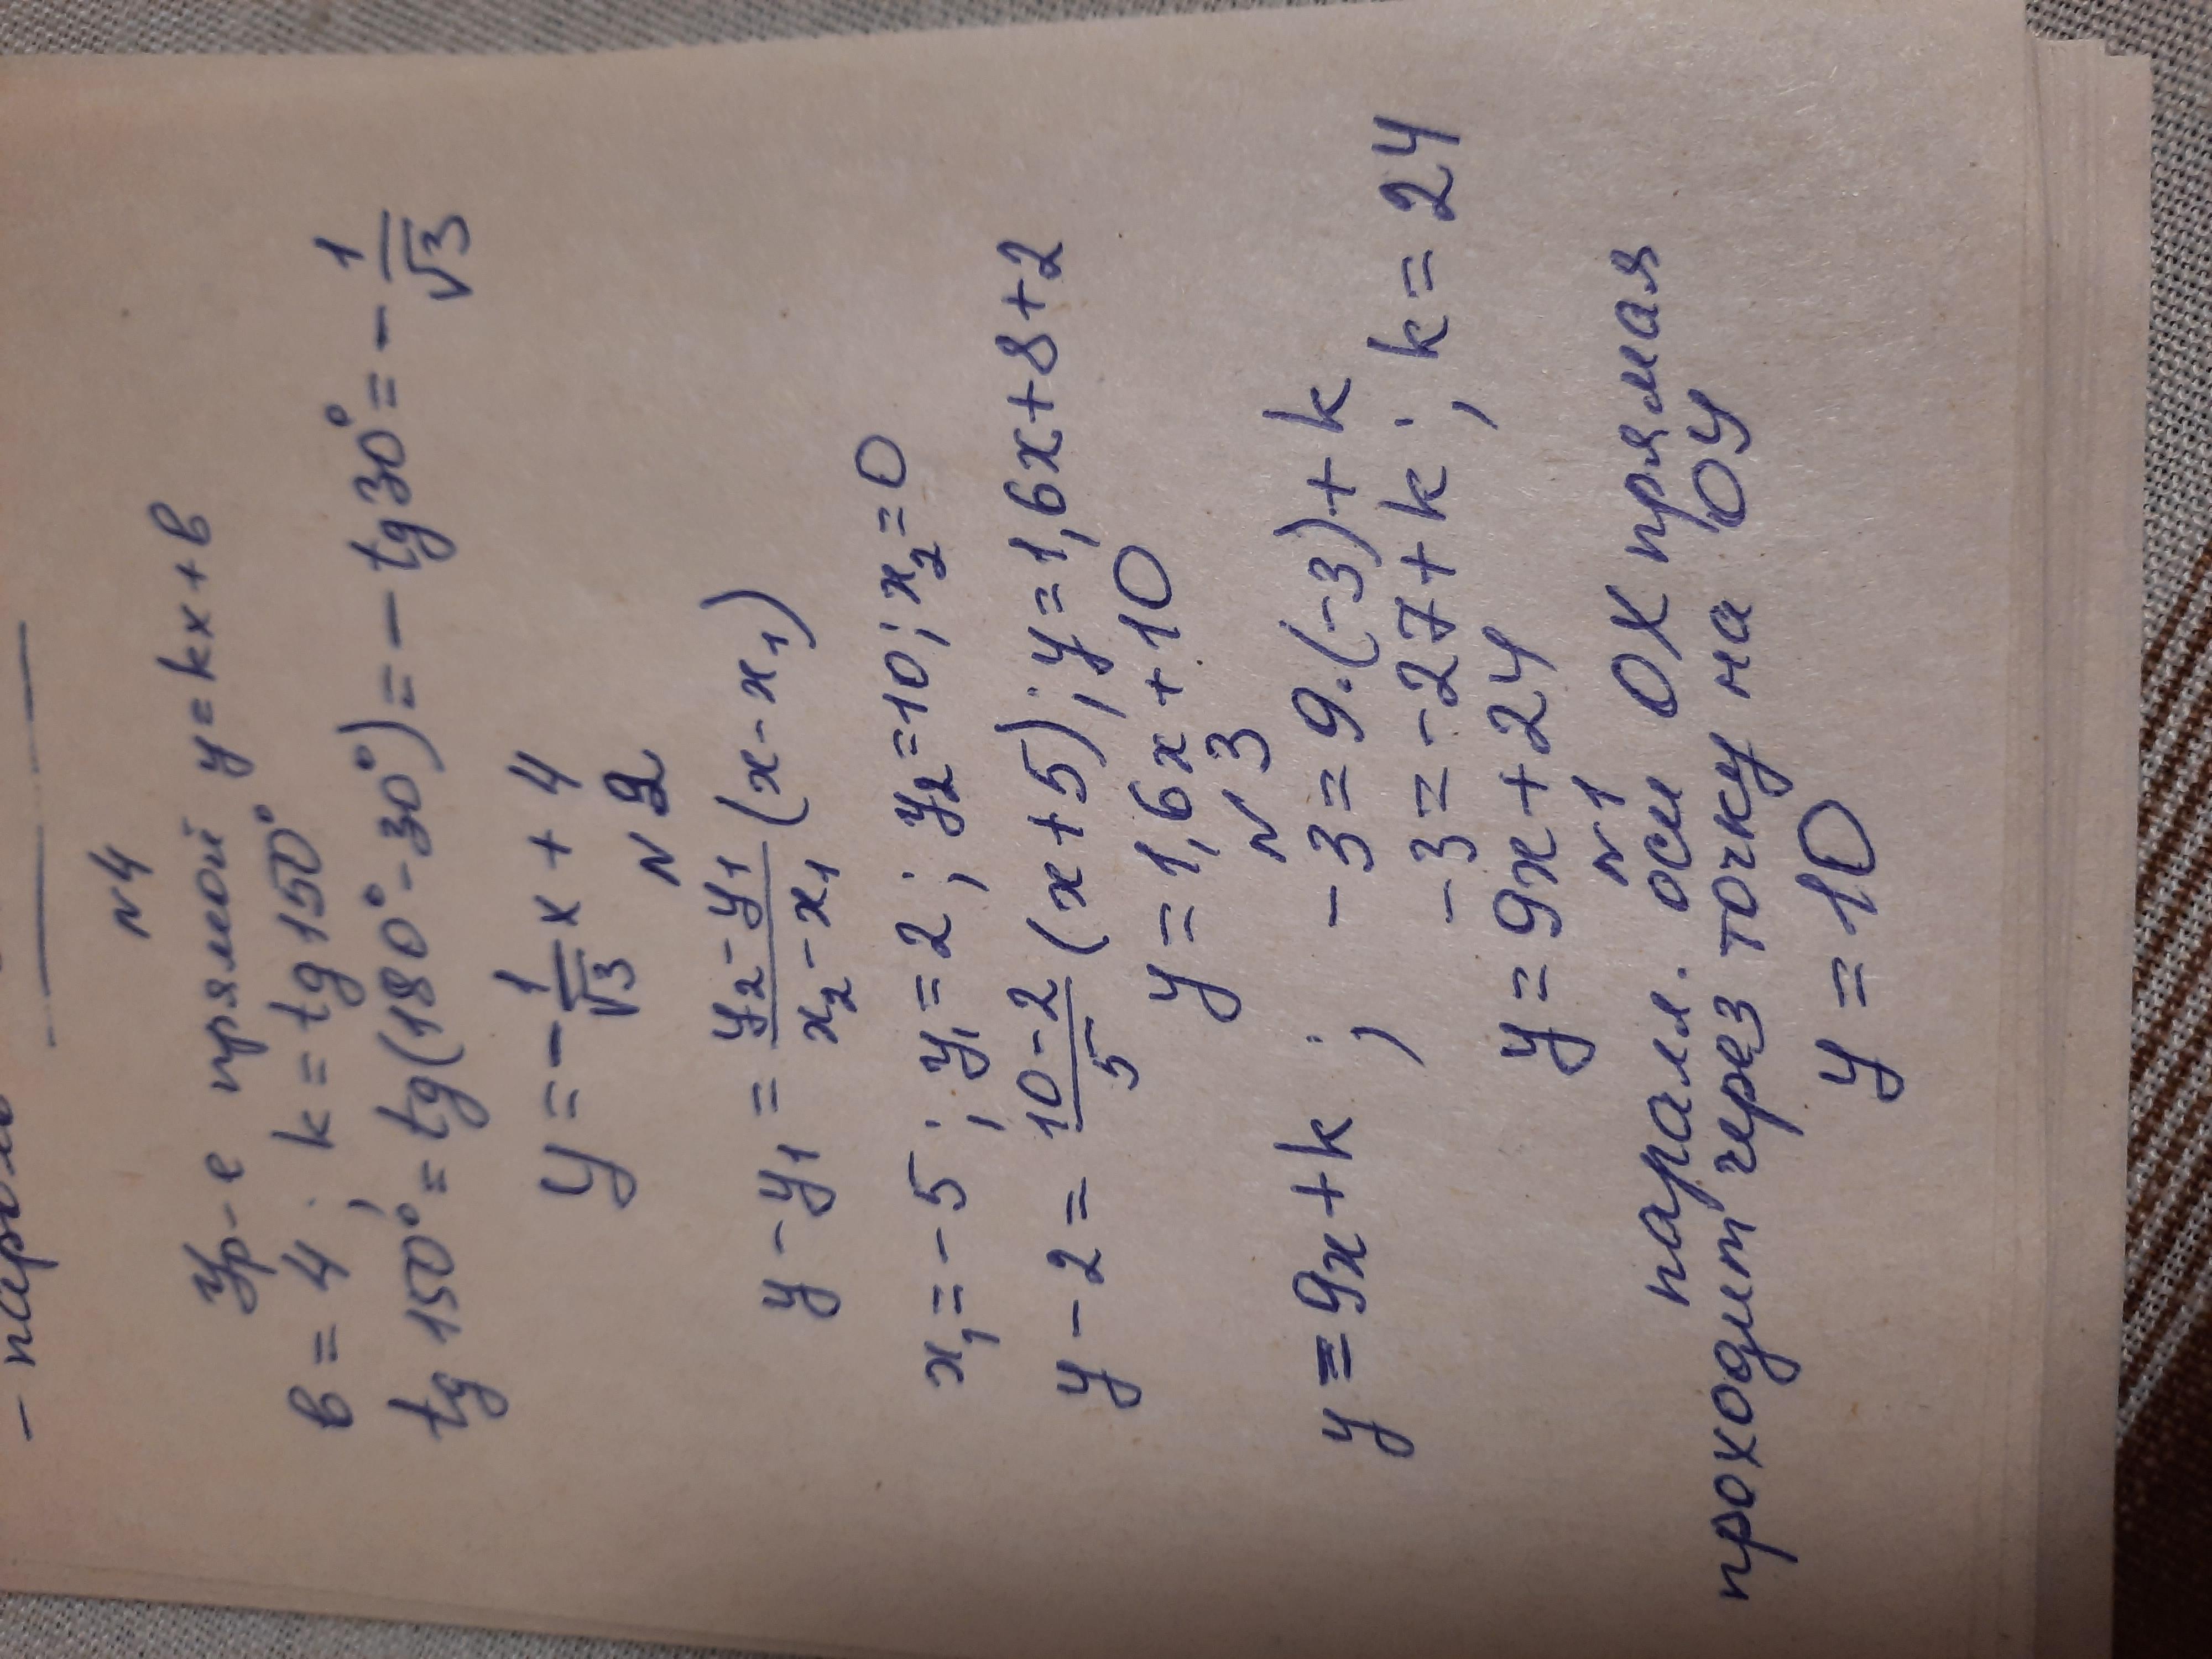 - парал
№4
Ур-е прямой y=kx+b
b=4; k=tg150°
tg150°=tg(180°-30°)=-tg30°=-1/√3
y=-1/√3 x+4
№2
y-y₁=(y₂-y₁)/(x₂-x₁)(x-x₁)
x₁=-5; y₁=2; y₂=10; x₂=0
y-2=(10-2)/5(x+5); y=1,6x+8+2
y=1,6x+10
№3
y=9x+k; -3=9·(-3)+k
-3=-27+k; k=24
y=9x+24
№1
паралл. оси OX прямая
проходит через точку на OY
y=10